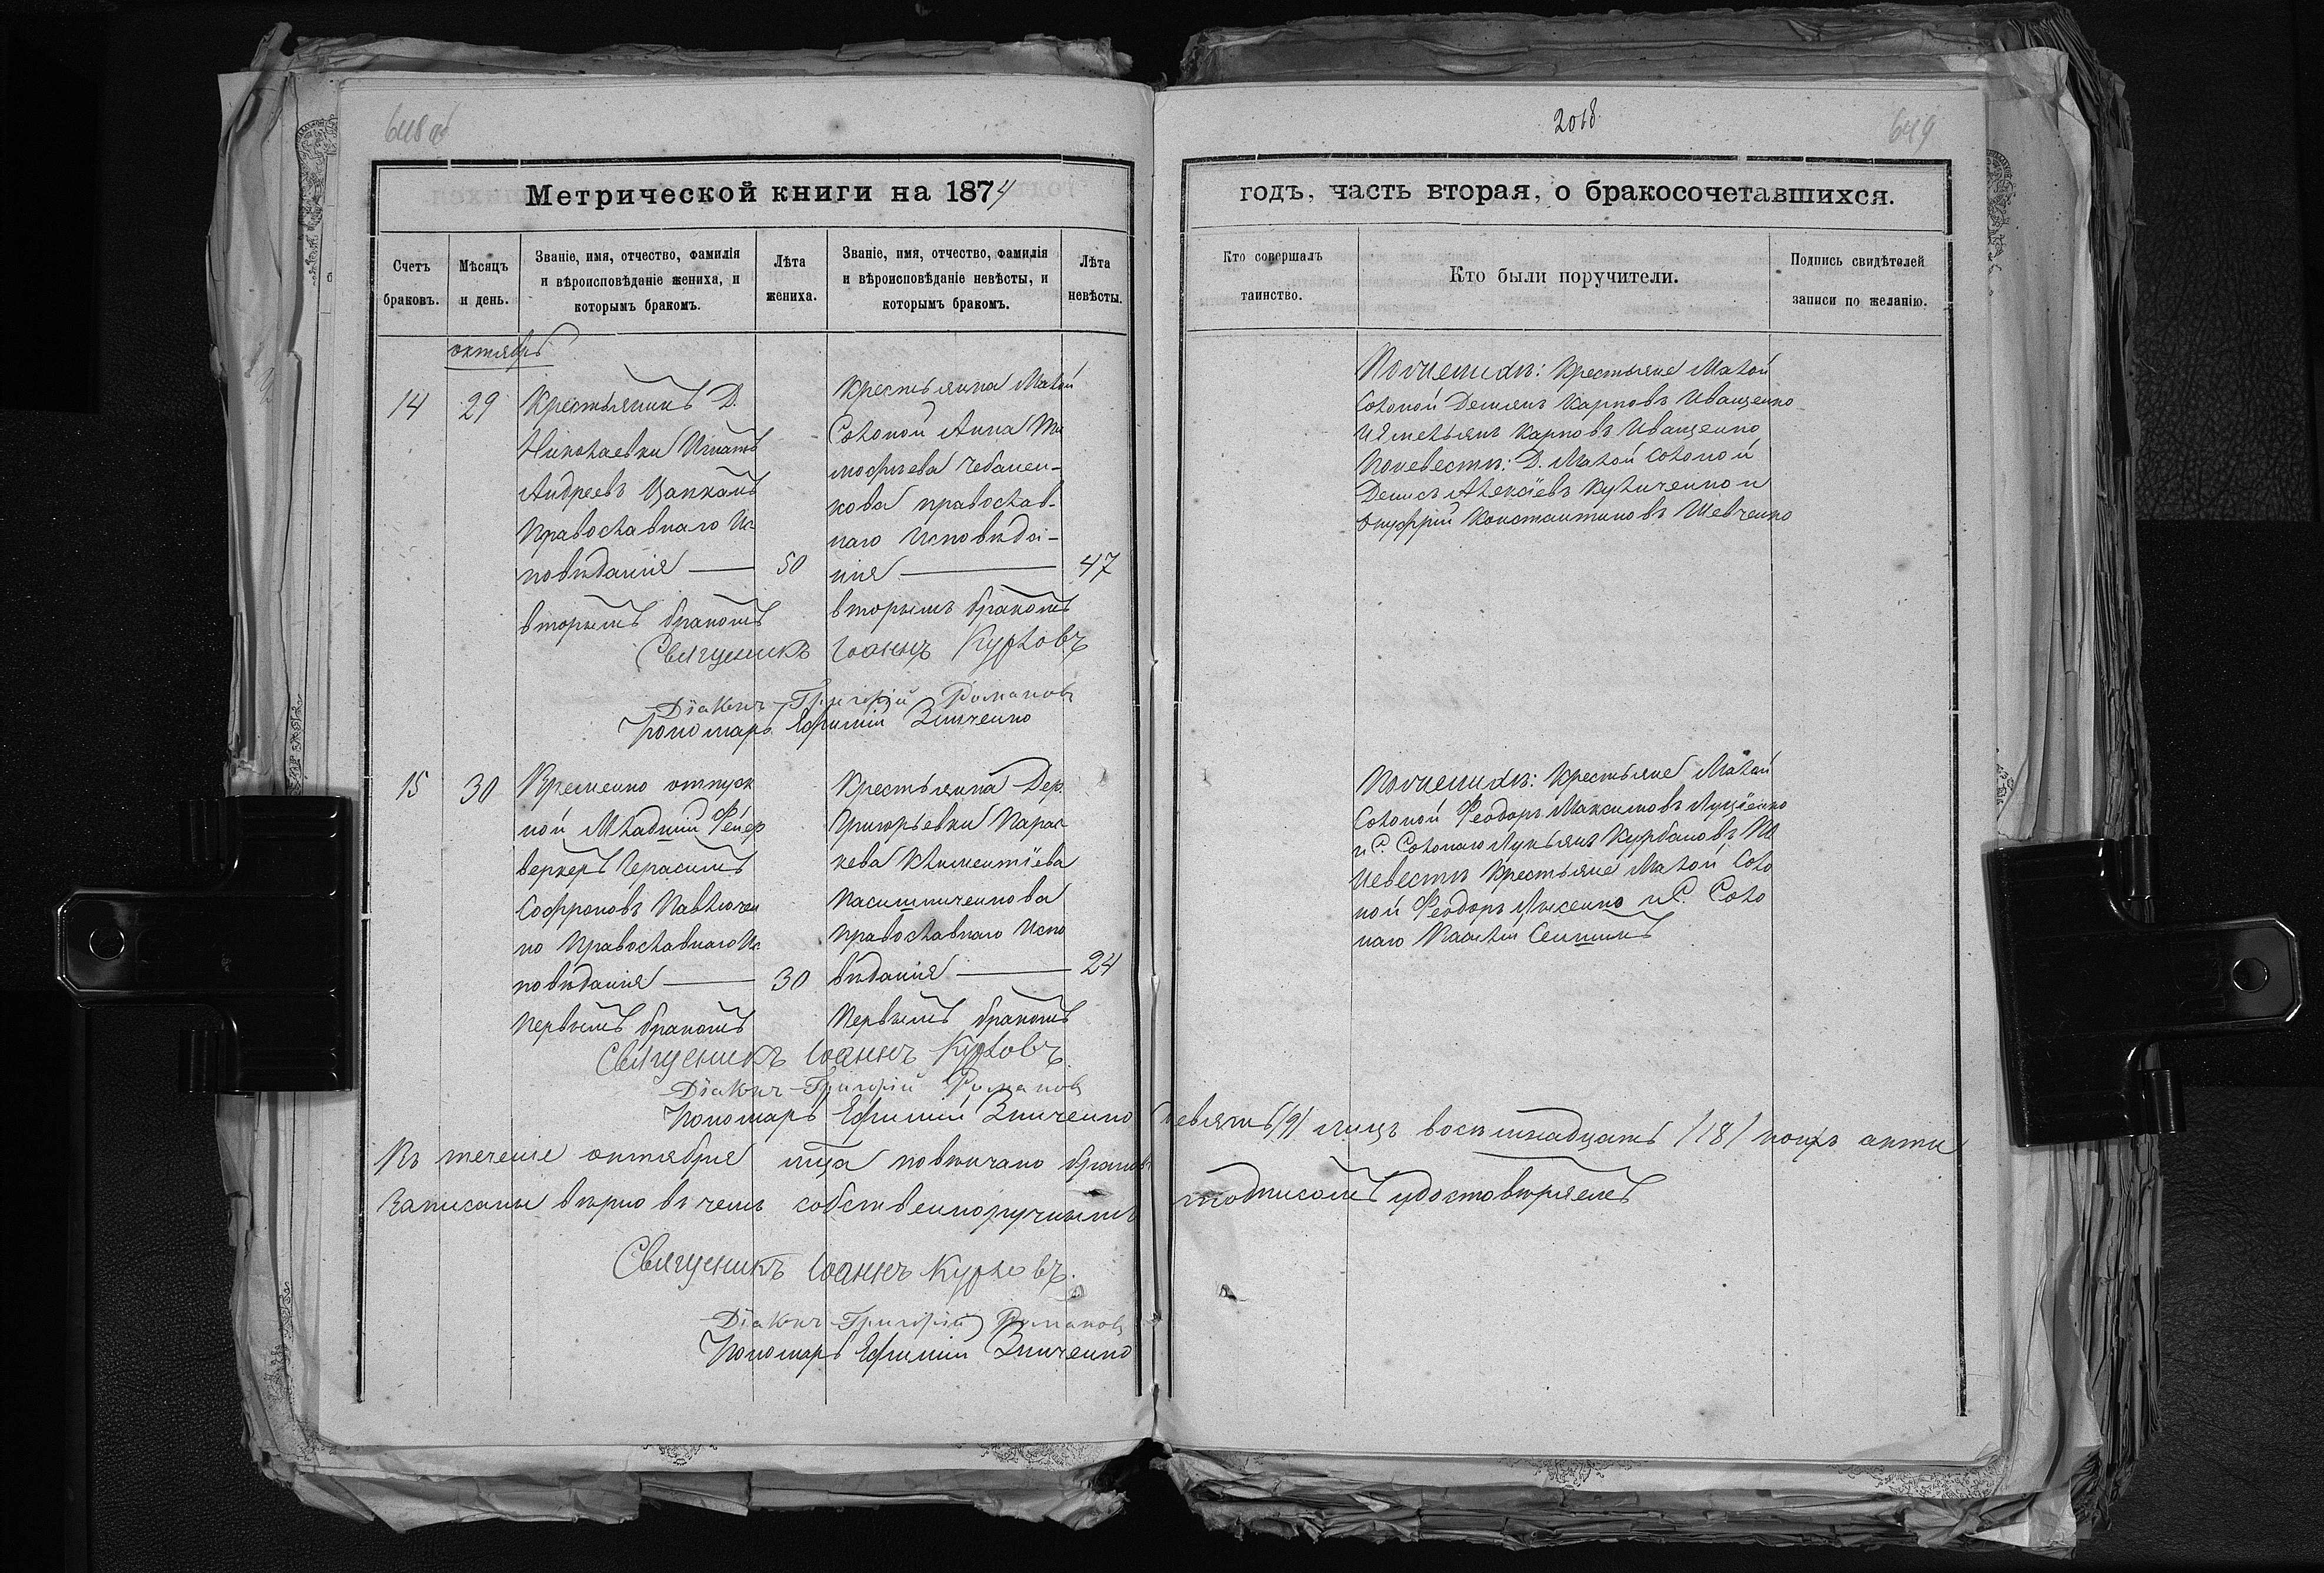 648 об
Метрической книги на 1874
Счетъ браковъ.
Мѣсяцъ и день.
Званіе, имя, отчество, фамилія и вѣроисповѣданіе жениха, и которымъ бракомъ.
Лѣта жениха.
Званіе, имя, отчество, фамилія и вѣроисповѣданіе невѣсты, и которымъ бракомъ.
Лѣта невѣсты.
октябрь
14
29
Крестьянинъ Д.
Николаевки Игнатъ
Андреевъ Цапкамъ
Православнаго Ис
повѣданія — 50
вторымъ бракомъ
Крестьянка Малой
Солоной Анна Ти
мофѣева Чебанен-
кова православ-
наго Исповѣда-
нія — 47
вторымъ бракомъ
Священикъ Іоаннъ Курловъ
Діаконъ Григорій Романовъ
Пономарь Ефимій Зинченко
15
30
Временно отпуск
ной Младшій Фейер
веркеръ Герасимъ
Софроновъ Павлючен
ко Православнаго Ис
повѣданія — 30
Первымъ бракомъ
Крестьянка Дер.
Григорьевки Парас
кева Климентіева
Пасишниченкова
православнаго Испо
вѣданія — 24
Первымъ бракомъ
Священикъ Іоаннъ Курловъ
Діаконъ Григорій Романовъ
Пономарь Ефимій Зинченко
Въ теченіе октября мца повѣнчано браковъ
Записаны вѣрно въ чемъ собственноручнымъ
Священикъ Іоаннъ Курловъ.
Діаконъ Григорій Романовъ
Пономарь Ефимій Зинченко
2018
649
годъ, часть вторая, о бракосочетавшихся.
Кто совершалъ таинство.
Кто были поручители.
Подпись свидѣтелей записи по желанію.
По женихѣ: Крестьяне Малой
Солоной Демьянъ Карповъ Иващенко
и Емельянъ Карповъ Иващенко
По невестѣ: Д. Малой Солоной
Денисъ Алексѣевъ Куличенко и
Онуфрій Константиновъ Шевченко
По женихѣ: Крестьяне Малой
Солоной Феодоръ Максимовъ Луценко
и С. Солонаго Лукьянъ Курбановъ По
невестѣ Крестьяне Малой Соло
ной Феодоръ Лысенко и С. Соло
наго Василій
девять /9/ лицъ восемнадцать /18/ коихъ акты
подписомъ удостовѣряемъ